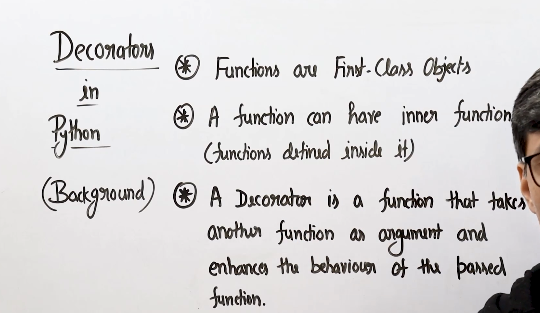 Decorators
in
Python
(Background)
* Functions are First-Class Objects
* A function can have inner function
(functions defined inside it)
* A Decorator is a function that takes
another function as argument and
enhances the behaviour of the passed
function.